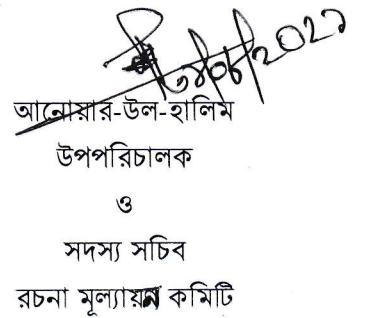 আনোয়ার-উল-হালিম
উপপরিচালক
ও
সদস্য সচিব
রচনা মূল্যায়ন কমিটি